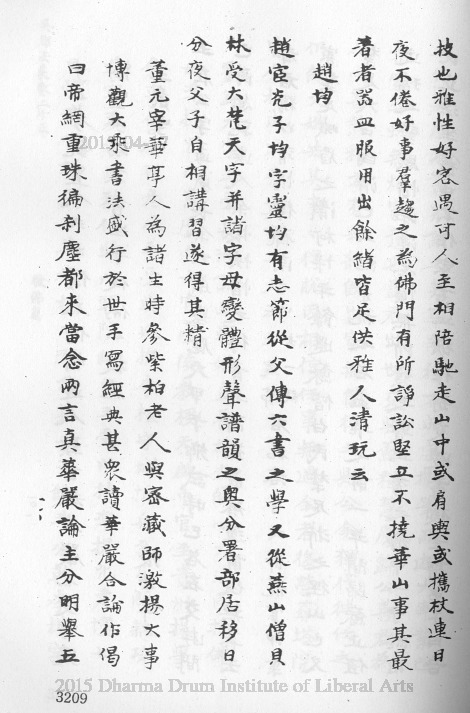 技也雅性好客遇討人至相陪馳走山中或肩輿或攜杖連日
夜不倦好事羣趨之為佛門有所諍訟堅立不撓華山事其最
著者器皿服用出餘緒皆足供雅人清玩云
趙均
趙宧光子均字靈均有志節從父傳六書之學又從燕山僧貝
林受大梵天字并諸字母變體形聲譜韻之奧分署部居移日
分夜父子自相講習遂得其精
董元宰華亭人為諸生時參紫柏老人與密藏師激揚大事
博觀大乘書法盛行於世手寫經典甚眾讀華嚴合論作偈
曰帝網重珠徧剎塵都來當念兩言真華嚴論主分明舉五
3209
2015 Dharma Drum Institute of Liberal Arts